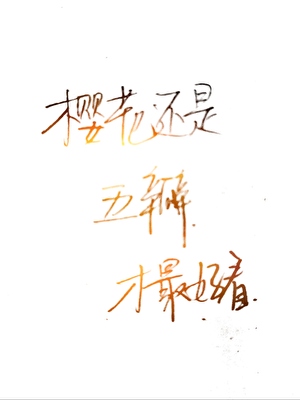 樱花还是
五瓣
才最好看.